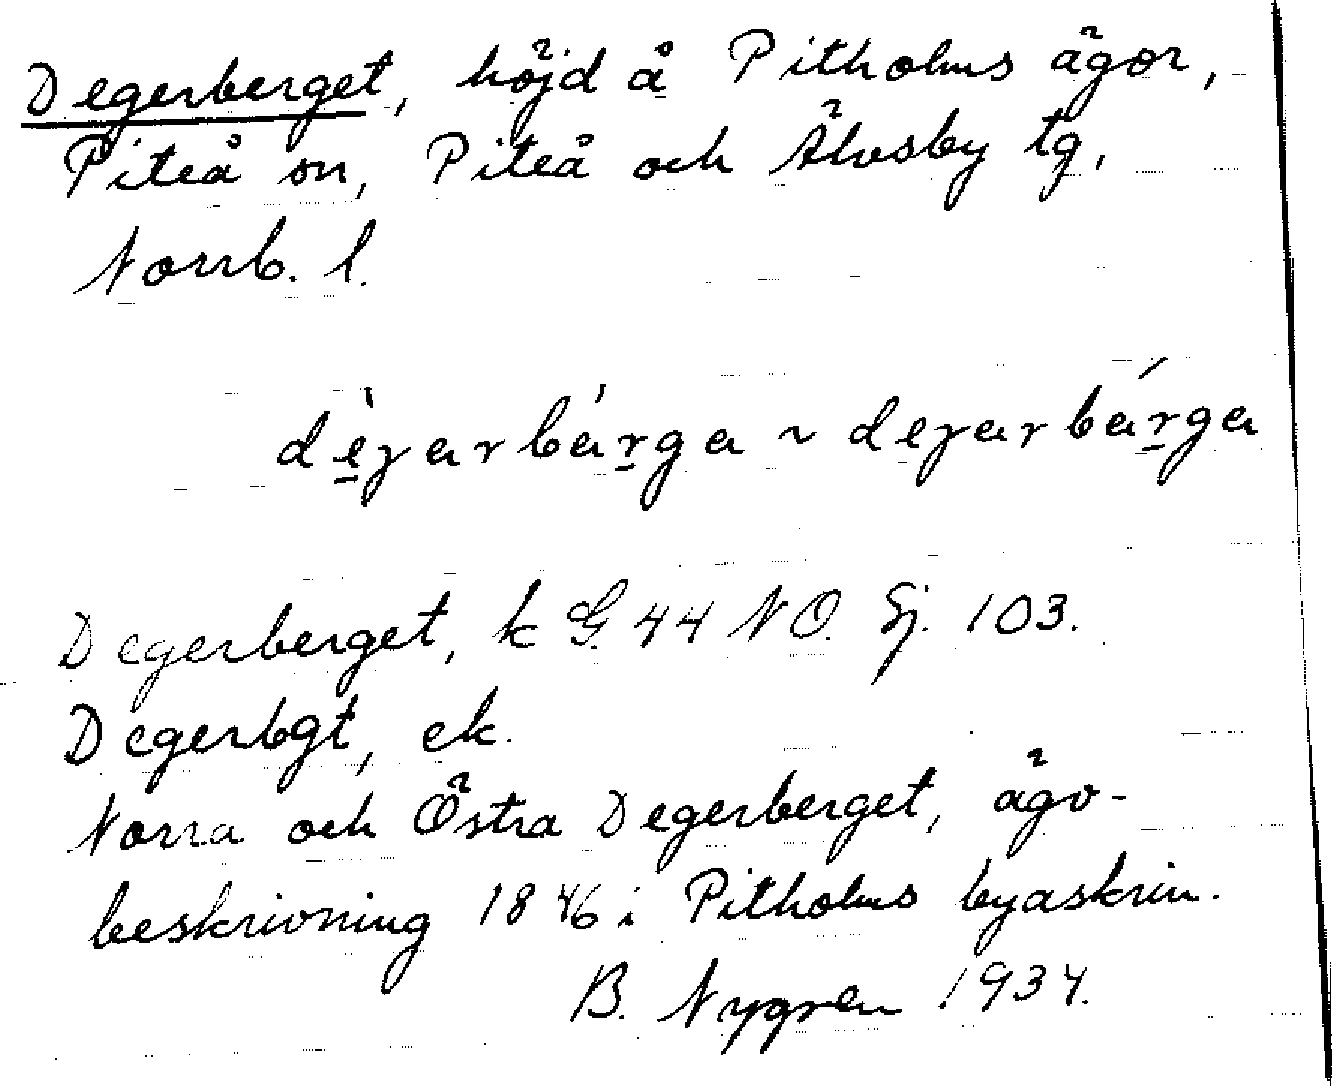 Degerberget, höjd å Pitholms ägor,
Piteå sn, Piteå och Älvsby tg,
Norrb. l.
dèɣarbárga ~ deɣarbárga
Degerberget, k G. 44 NO. Sj. 103.
Degerbgt, ek.
Norra och Östra Degerberget, ägo-
beskrivning 1846 i Pitholms byaskrin.
B. Nygren 1934.